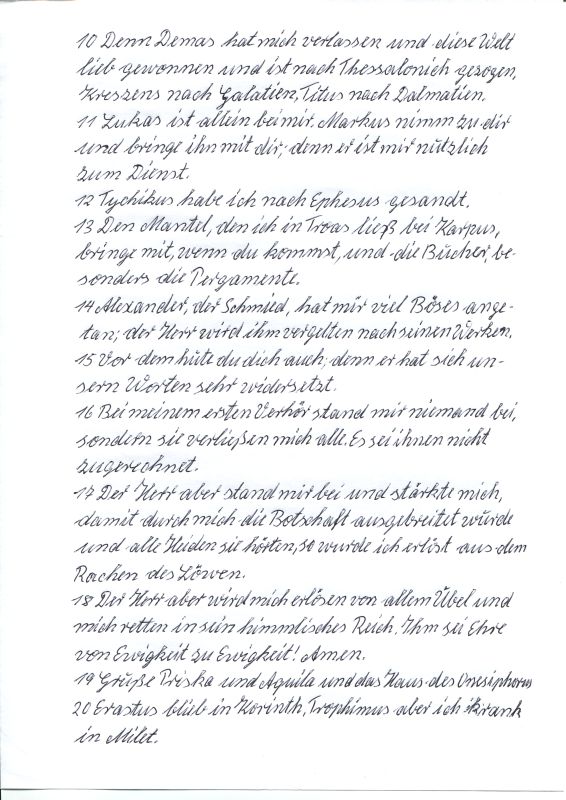 10 Denn Demas hat mich verlassen und diese Welt
lieb gewonnen und ist nach Thessalonich gezogen,
Kreszens nach Galatien, Titus nach Dalmatien.
11 Lukas ist allein bei mir. Markus nimm zu dir
und bringe ihn mit dir; denn er ist mir nützlich
zum Dienst.
12 Tychikus habe ich nach Ephesus gesandt.
13 Den Mantel, den ich in Troas ließ bei Karpus,
bringe mit, wenn du kommst, und die Bücher, be-
sonders die Pergamente.
14 Alexander, der Schmied, hat mir viel Böses ange-
tan; der Herr wird ihm vergelten nach seinen Werken.
15 Vor dem hüte du dich auch; denn er hat sich un-
sern Worten sehr widersetzt.
16 Bei meinem ersten Verhör stand mir niemand bei,
sondern sie verließen mich alle. Es sei ihnen nicht
zugerechnet.
17 Der Herr aber stand mir bei und stärkte mich,
damit durch mich die Botschaft ausgebreitet würde
und alle Heiden sie hörten, so wurde ich erlöst aus dem
Rachen des Löwen.
18 Der Herr aber wird mich erlösen von allem Übel und
mich retten in sein himmlisches Reich. Ihm sei Ehre
von Ewigkeit zu Ewigkeit! Amen.
19 Grüße Priska und Aquila und das Haus des Onesiphorus
20 Erastus blieb in Korinth, Trophimus aber ich krank
in Milet.